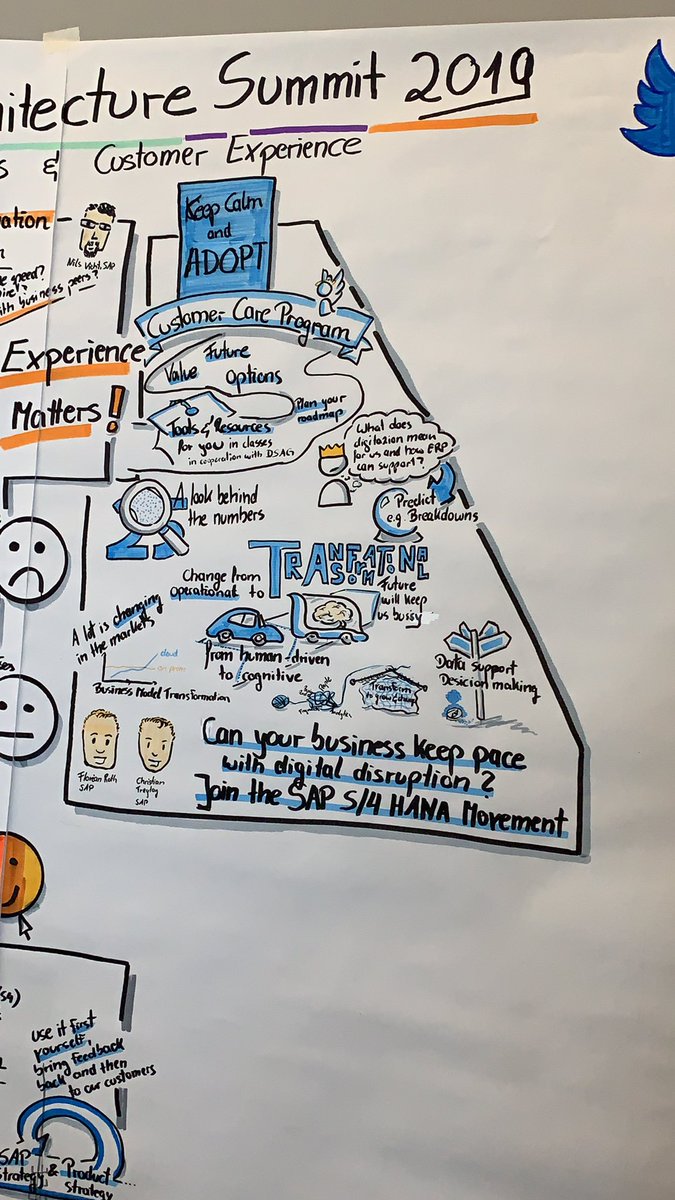 hitecture Summit 2019
s & Customer Experience
vation
Nils Vichl, SAP
e speed?
ith business peers?
Keep Calm
and
ADOPT
Customer Care Program
Experience
Matters!
Future
Value
Options
Plan your
roadmap
Tools & Resources
for you in classes
in cooperation with DSAG
What does
digitazion mean
for us and how ERP
can support?
A look behind
the numbers
Predict
e.g. Breakdowns
TRANSFORMATIONAL
Change from
operational to
Future
will keep
us busy
A lot is changing
in the markets
cloud
on prem
Business Model Transformation
from human-driven
to cognitive
Transform
Data support
Desicion making
Florian Roth
SAP
Christian
SAP
Can your business keep pace
with digital disruption?
Join the SAP S/4 HANA Movement
use it first
yourself,
bring feedback
back and then
to our customers
SAP
Strategy & Product
Strategy